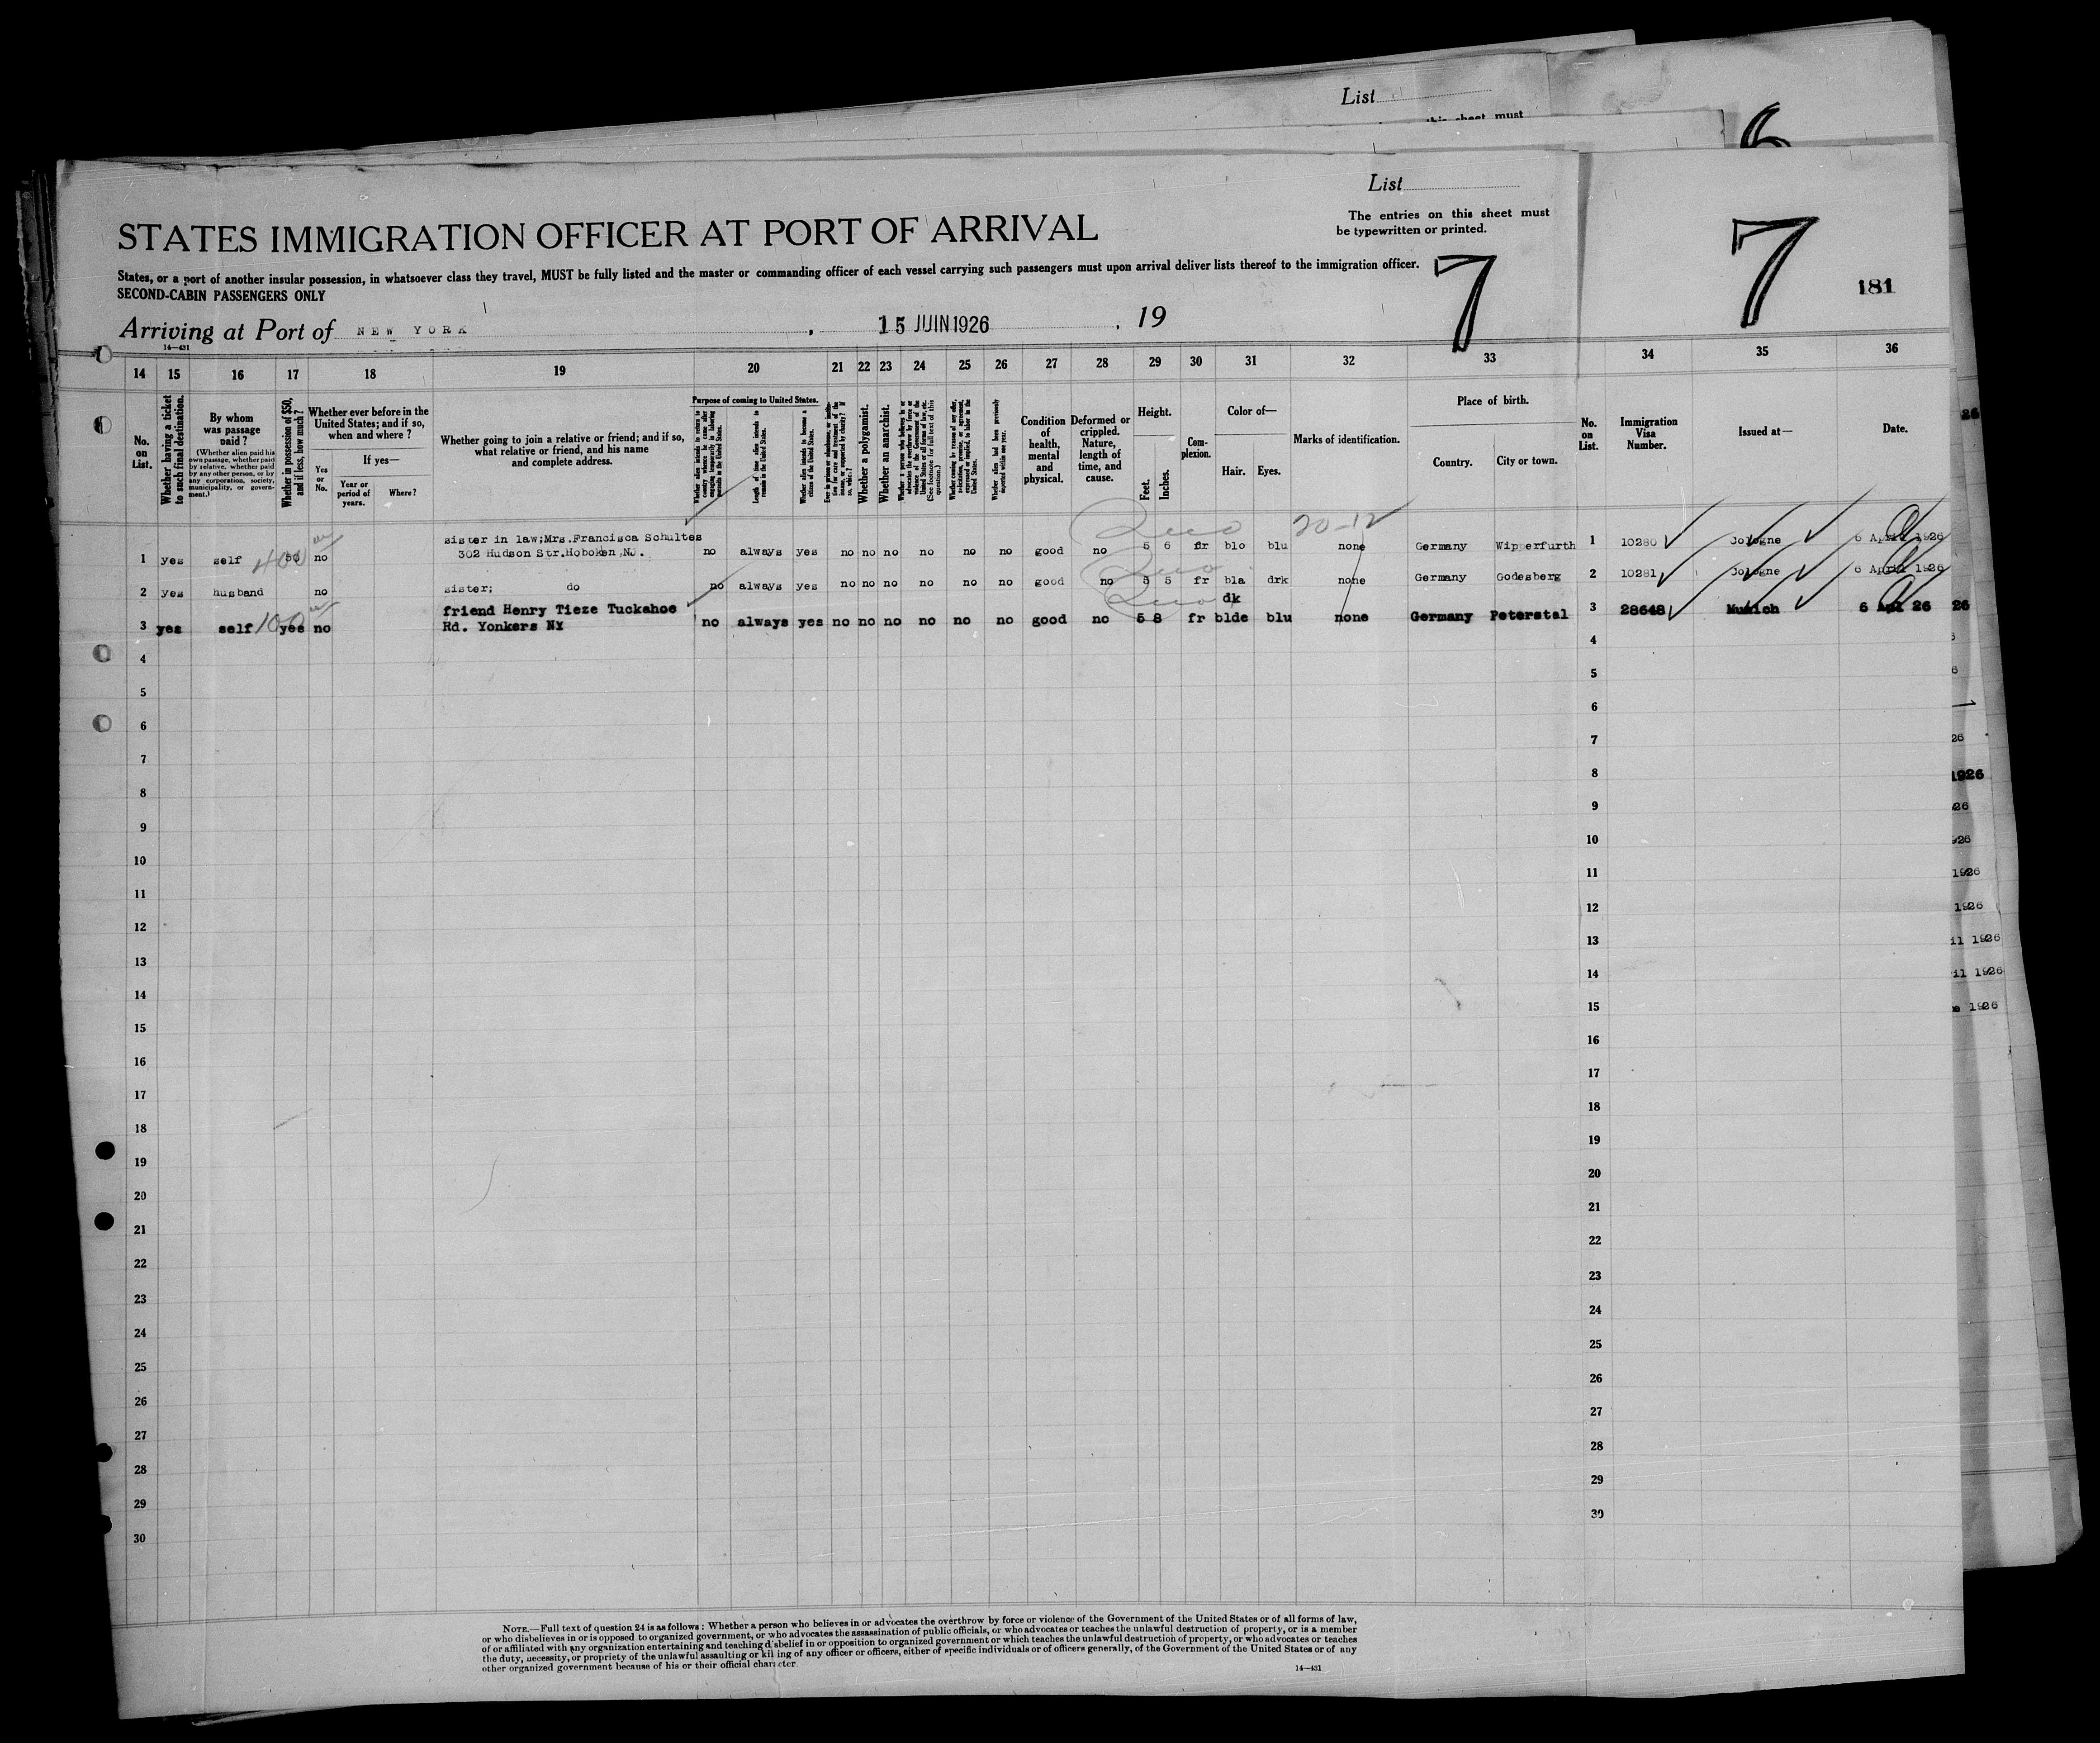 List
this sheet must
6
List
The entries on this sheet must
be typewritten or printed.
7
7
181
STATES IMMIGRATION OFFICER AT PORT OF ARRIVAL
States, or a port of another insular possession, in whatsoever class they travel, MUST be fully listed and the master or commanding officer of each vessel carrying such passengers must upon arrival deliver lists thereof to the immigration officer.
SECOND-CABIN PASSENGERS ONLY
Arriving at Port of NEW YORK , 15 JUIN 1926 , 19
14—431
14 15 16 17 18 19 20 21 22 23 24 25 26 27 28 29 30 31 32 33 34 35 36
No. on List.
Whether having a ticket to such final destination.
By whom was passage paid?
(Whether alien paid his own passage, whether paid by relative, whether paid by any other person, or by any corporation, society, municipality, or government.)
Whether in possession of $50, and if less, how much?
Whether ever before in the United States; and if so, when and where?
Yes or No.
If yes—
Year or period of years.
Where?
Whether going to join a relative or friend; and if so, what relative or friend, and his name and complete address.
Purpose of coming to United States.
Whether alien intends to return to country whence he came after engaging temporarily in laboring pursuits in the United States.
Length of time alien intends to remain in the United States.
Whether alien intends to become a citizen of the United States.
Ever in prison or almshouse, or institution for care and treatment of the insane, or supported by charity? If so, which?
Whether a polygamist.
Whether an anarchist.
(See footnote for full text of this question.)
Whether alien had been previously deported within one year.
Condition of health, mental and physical.
Deformed or crippled. Nature, length of time, and cause.
Height.
Feet.
Inches.
Complexion.
Color of—
Hair.
Eyes.
Marks of identification.
Place of birth.
Country.
City or town.
No. on List.
Immigration Visa Number.
Issued at—
Date.
20-12
1 yes self 400 50 no sister in law;Mrs.Francisca Schultes
302 Hudson Str.Hoboken NJ. no always yes no no no no no no good no 5 6 fr blo blu none Germany Wipperfurth 1 10280 Cologne 6 April 1926
2 yes husband no sister; do no always yes no no no no no no good no 5 5 fr bla drk none Germany Godesberg 2 10281 Cologne 6 April 1926
dk
3 yes self 100 yes no friend Henry Tieze Tuckahoe
Rd. Yonkers NY no always yes no no no no no no good no 5 8 fr blde blu none Germany Peterstal 3 28648 Munich 6 Apl 26 26
4 4
5 5
6 6
7 7 26
8 8 1926
9 9 26
10 10 926
11 11 1926
12 12 1926
13 13 il 1926
14 14 il 1926
15 15 1926
16 16
17 17
18 18
19 19
20 20
21 21
22 22
23 23
24 24
25 25
26 26
27 27
28 28
29 29
30 30
NOTE.—Full text of question 24 is as follows: Whether a person who believes in or advocates the overthrow by force or violence of the Government of the United States or of all forms of law,
or who disbelieves in or is opposed to organized government, or who advocates the assassination of public officials, or who advocates or teaches the unlawful destruction of property, or is a member
of or affiliated with any organization entertaining and teaching disbelief in or opposition to organized government or which teaches the unlawful destruction of property, or who advocates or teaches
the duty, necessity, or propriety of the unlawful assaulting or killing of any officer or officers, either of specific individuals or of officers generally, of the Government of the United States or of any
other organized government because of his or their official character
14—431